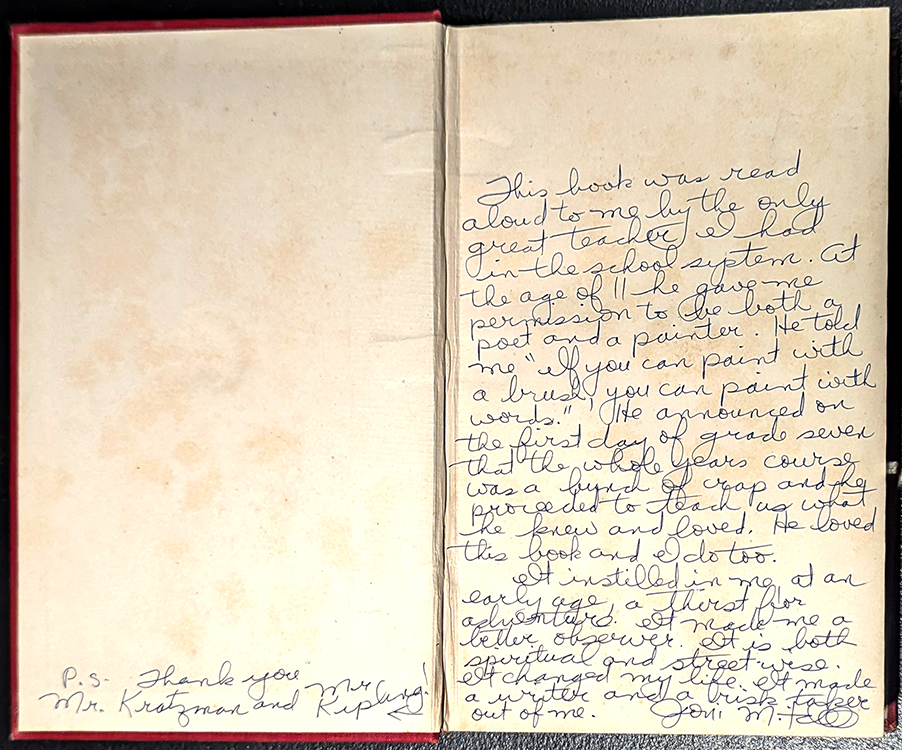 This book was read
aloud to me by the only
great teacher I had
in the school system. At
the age of 11 he gave me
permission to be both a
poet and a painter. He told
me "If you can paint with
a brush you can paint with
words." He announced on
the first day of grade seven
that the whole years course
was a bunch of crap and he
proceeded to teach us what
he knew and loved. He loved
this book and I do too.
It instilled in me at an
early age, a thirst for
adventure. It made me a
better observer. It is both
spiritual and streetwise.
It changed my life. It made
a writer and a risk taker
out of me. Joni M.
P.S. Thank you
Mr. Kratzman and Mr. Kipling!